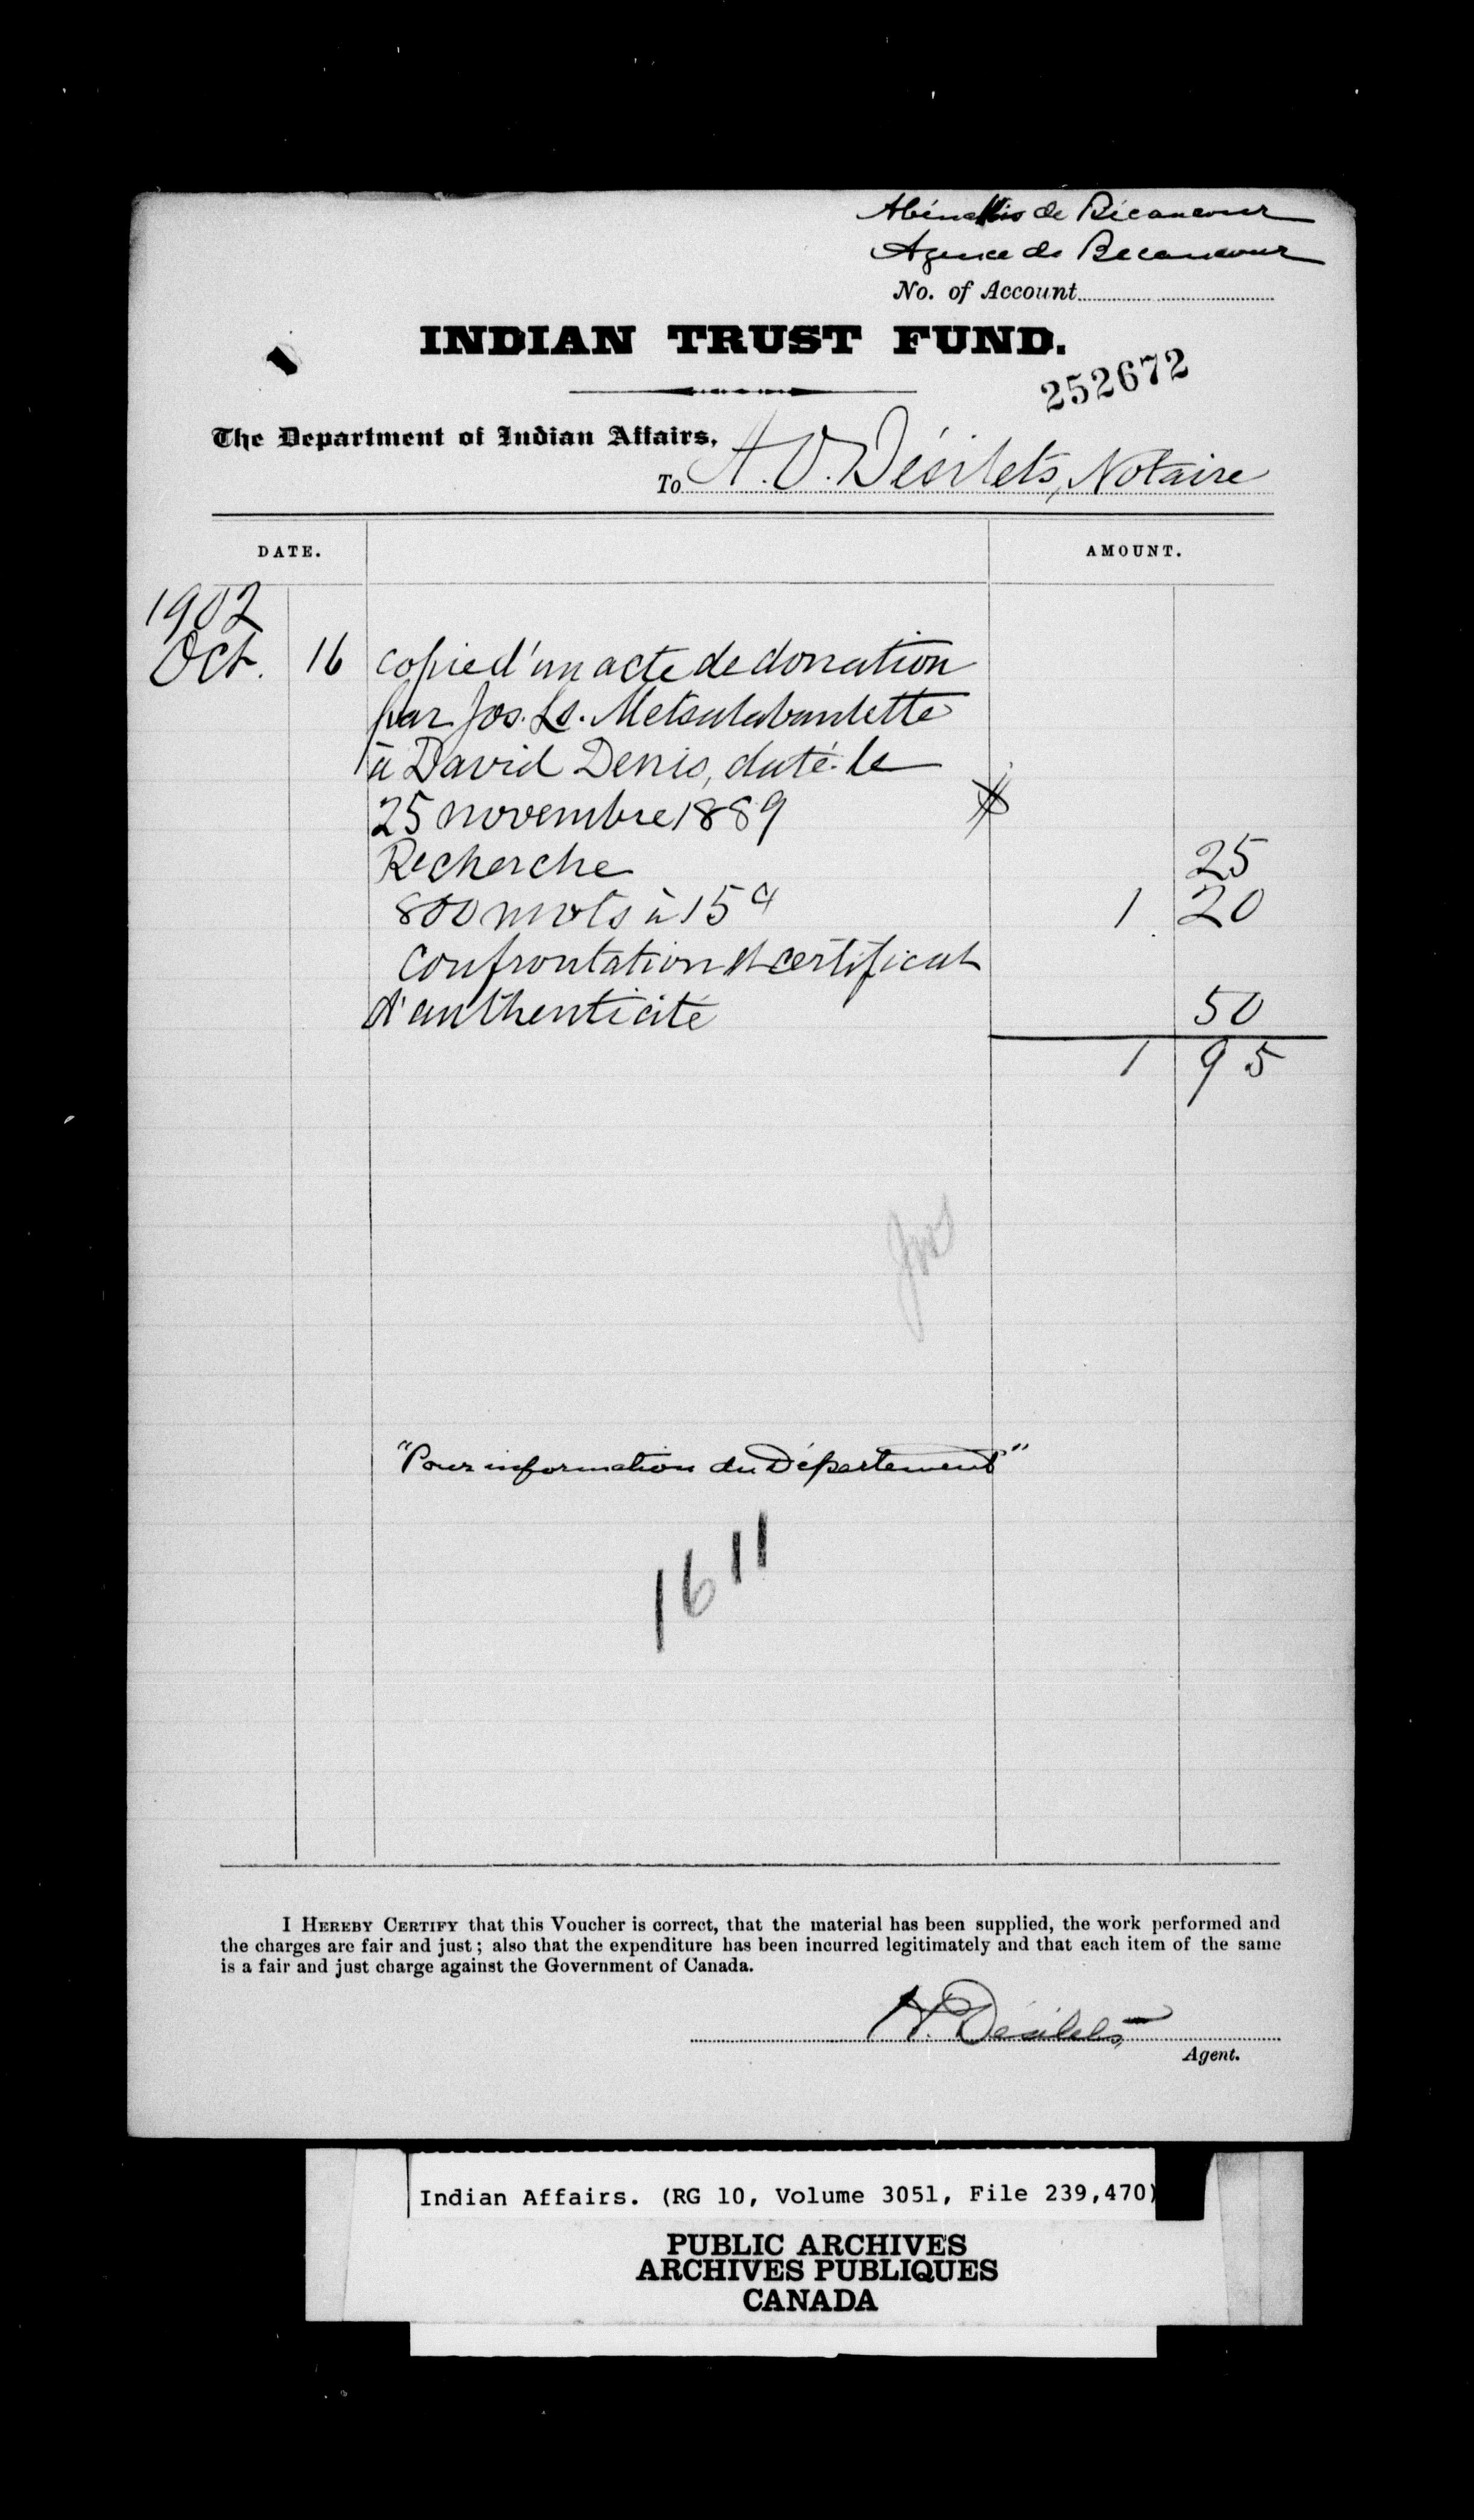 Abénakis de Bécancour
Agence de Becancour
No. of Account
INDIAN TRUST FUND.
252672
The Department of Indian Affairs,
To A. O. Désilets, Notaire
DATE.
AMOUNT.
1902
Oct. 16 copie d'un acte de donation
par Jos. Ls. Metsalabanlette
à David Denis, daté le
25 novembre 1889 $
Recherche 25
800 mots à 15 cts 1 20
Confrontation et certificat
d'authenticité 50
1 95
"Pour information du Département"
16 11
I HEREBY CERTIFY that this Voucher is correct, that the material has been supplied, the work performed and
the charges are fair and just; also that the expenditure has been incurred legitimately and that each item of the same
is a fair and just charge against the Government of Canada.
H. Désilets,
Agent.
Indian Affairs. (RG 10, Volume 3051, File 239,470)
PUBLIC ARCHIVES
ARCHIVES PUBLIQUES
CANADA